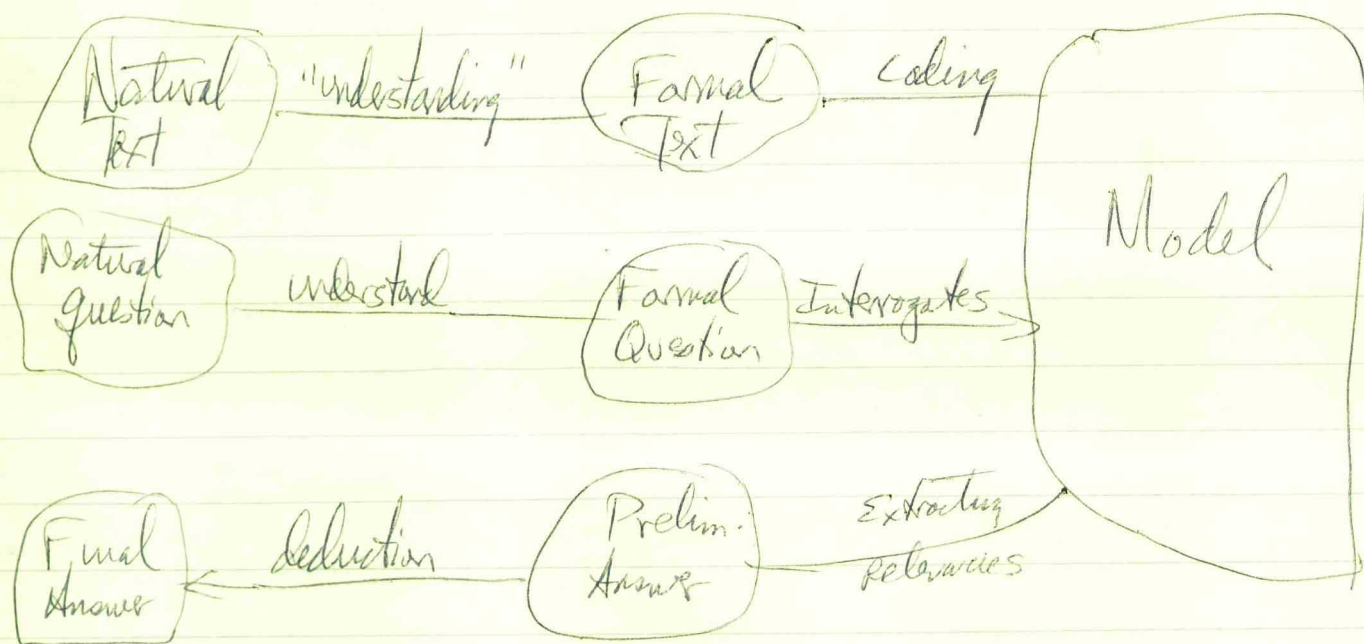 Natural
Text
"understanding"
Formal
Text
Coding
Model
Natural
Question
understand
Formal
Question
Interrogates
Final
Answer
deduction
Prelim.
Answer
Extracting
relevancies